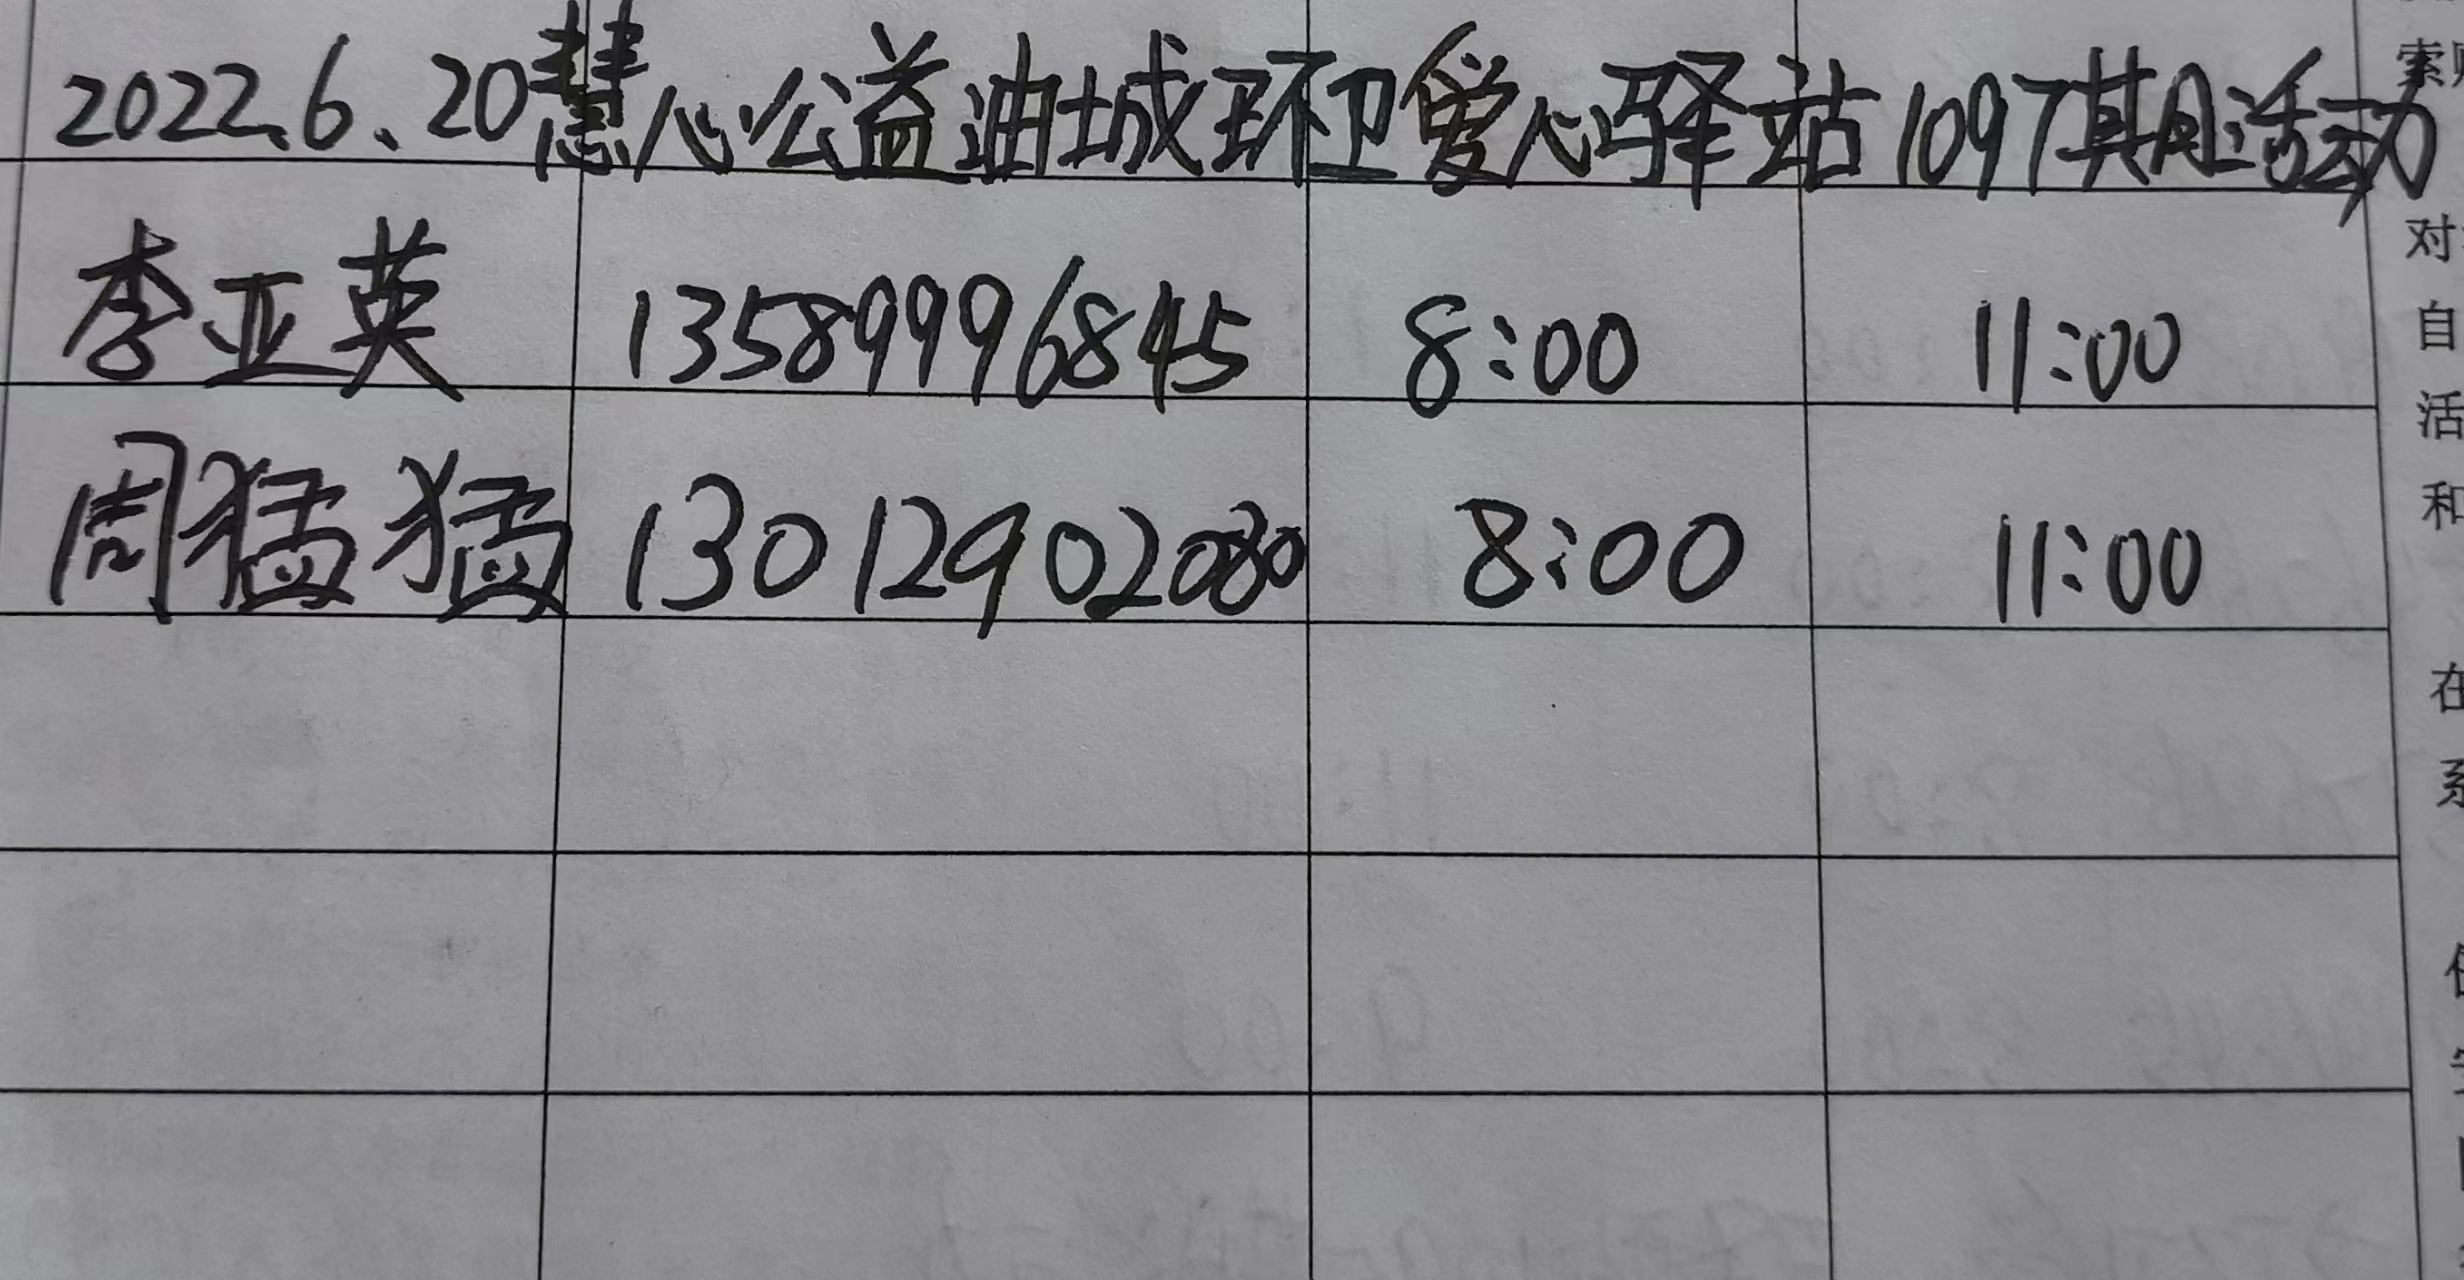 2022.6.20慧心公益油城环卫爱心驿站1097期活动
李亚英 13589996845 8:00 11:00
周猛猛 13012902080 8:00 11:00
索
对
自
活
和
在
系